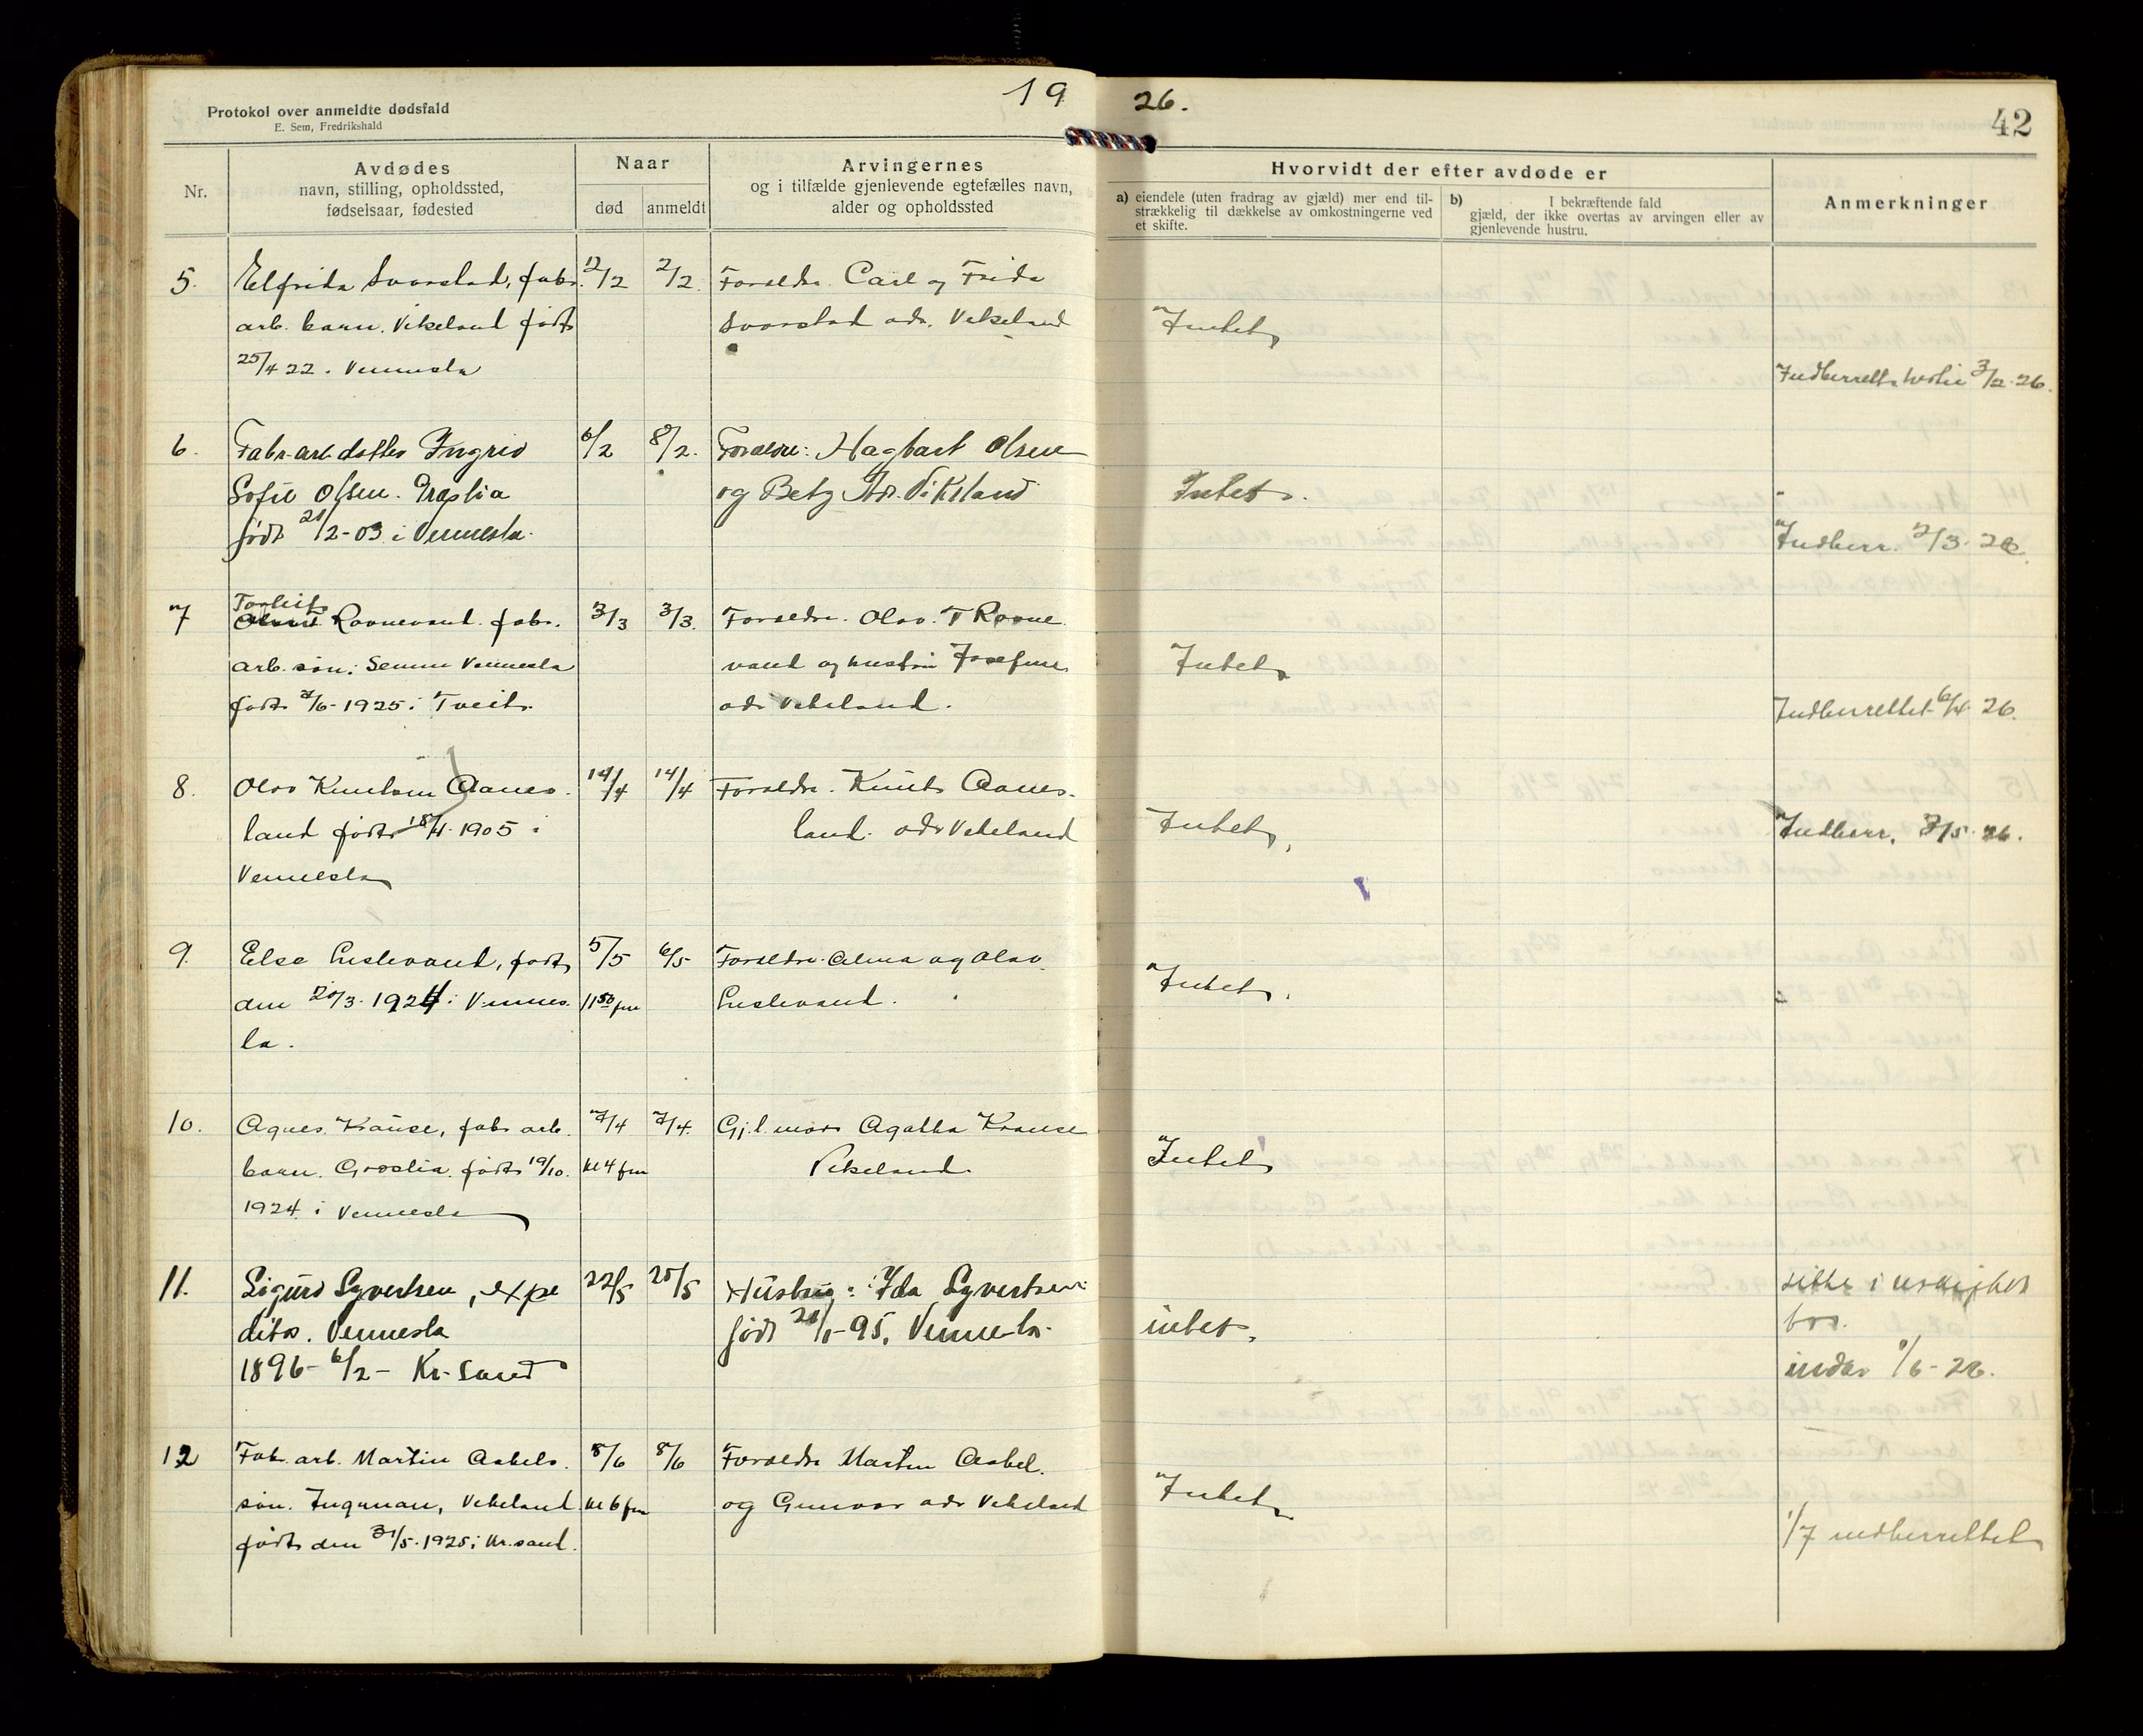 Protokol over anmeldte dødsfald
E. Sem, Fredrikshald
19 26.
42
Nr.
Avdødes
navn, stilling, opholdssted,
fødselsaar, fødested
Naar
død
anmeldt
Arvingernes
og i tilfælde gjenlevende egtefælles navn,
alder og opholdssted
Hvorvidt der efter avdøde er
a) eiendele (uten fradrag av gjæld) mer end til-
strækkelig til dækkelse av omkostningerne ved
et skifte.
b) I bekræftende fald
gjæld, der ikke overtas av arvingen eller av
gjenlevende hustru.
Anmerkninger
5.
Elfrida Svarstad, fabr.
arb. barn. Vikeland født
25/4 22. Vennesla
2/2.
Foreldre. Carl og Frida
Svarstad adr. Vikeland
Intet
3/2-26.
6.
Fabr-arb datter Ingrid
Sofie Olsen. Graslia
født 21/2-03 i Vennesla.
6/2
8/2.
Foreldre: Hagbart Olsen
og Betzy Adr. Vikeland
Intet.
Indberr. 2/3-26
7
Torleif
Rovnevand. fabr.
arb. søn. Vennesla
født 7/6-1925 i Tveit.
3/3
3/3.
Foreldre. Olav. T Rovne
vand og hustru Josefine
adr Vikeland.
Intet
Indberrettet 6/4 26.
8.
Olav Knutsen Aanes.
land født 18/4-1905 i
Vennesla
14/4
14/4
Foreldre. Knut Aanes.
land. adr Vikeland
Intet,
Indberr. 3/5-26.
9.
Else Lislevand, født
den 20/3-1924 i Vennes.
la.
5/5
11 50 fm
6/5
Foreldre. Alma og Olav
Lislevand.
Intet.
10.
Agnes Krause, fabr arb.
barn. Graslia. født 19/10.
1924 i Vennesla
7/4
kl 4 fm
7/4.
Gj.l. mor Agatha Krause
Vikeland.
Intet
11.
Sigurd Syvertsen, expe
ditør. Vennesla
1896-6/2- Kr-Sand
22/5
25/5
Hustru: Ida Syvertsen
født -95. Vennesla.
intet.
sitter i uskiftet
bo.
indb. 1/6-26.
12
Fab. arb. Martin Aabels.
søn. Ingmar, Vikeland
født den 31/5-1925 i Kr.sand.
8/6
kl 6 fm
8/6
Foreldre Martin Aabel.
og Gunvor adr Vikeland
Intet
1/7 indberrettet